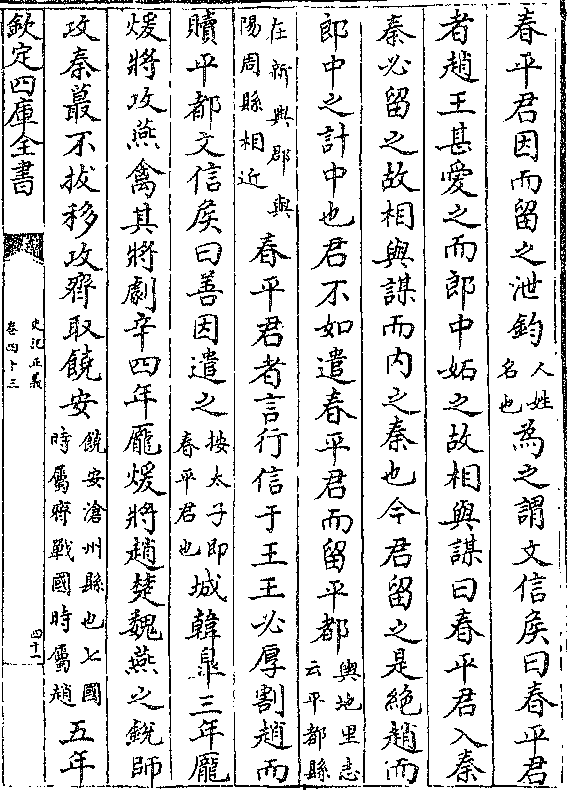 春平君因而留之泄鈞人姓名也為之謂文信矦曰春平君
者趙王甚愛之而郎中妬之故相與謀曰春平君入秦
秦必留之故相與謀而内之秦也今君留之是絶趙而
郎中之計中也君不如遣春平君而留平都輿地里志云平都縣
在新興郡與陽周縣相近春平君者言行信于王王必厚割趙而
贖平都文信矦曰善因遣之按太子即春平君也城韓臯三年龎
煖將攻燕禽其將劇辛四年龎煖將趙楚魏燕之鋭師
攻秦蕞不拔移攻齊取饒安饒安滄州縣也七國時屬齊戰國時屬趙五年
欽定四庫全書
史記正義
卷四十三
四十一